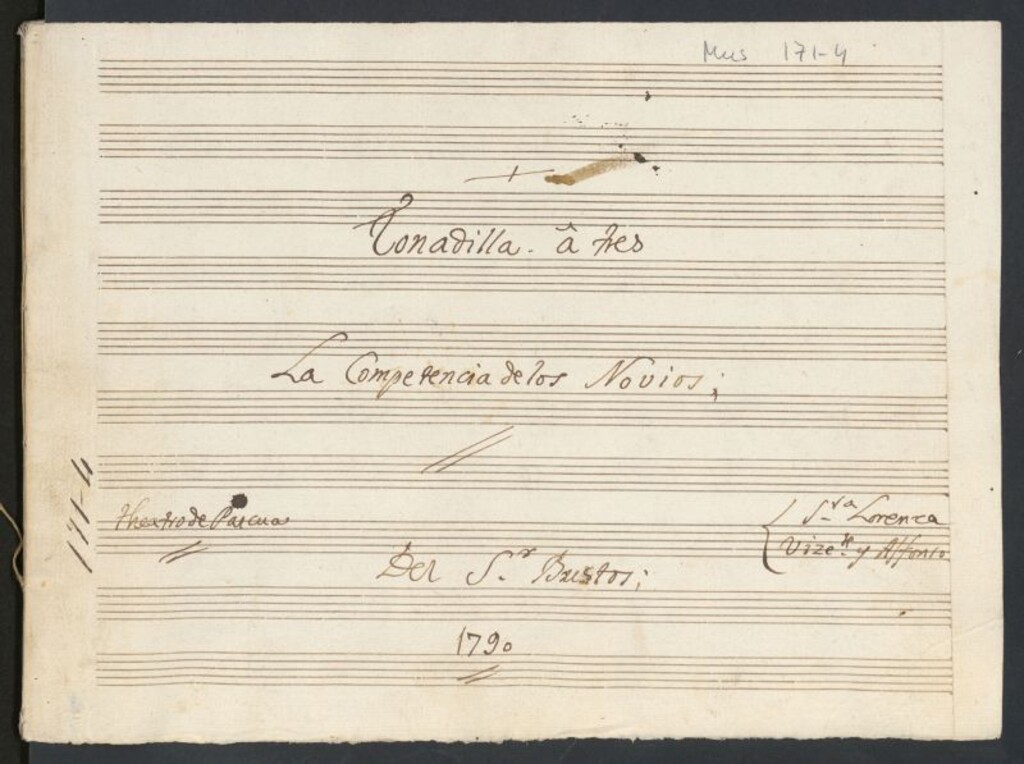 Mus 171-4
Tonadilla. â tres
La Competencia de los Novios;
171-4
theatro de Pascua
Sra Lorenza
Vizte. y Affonso
Del Sr. Bustos;
1790